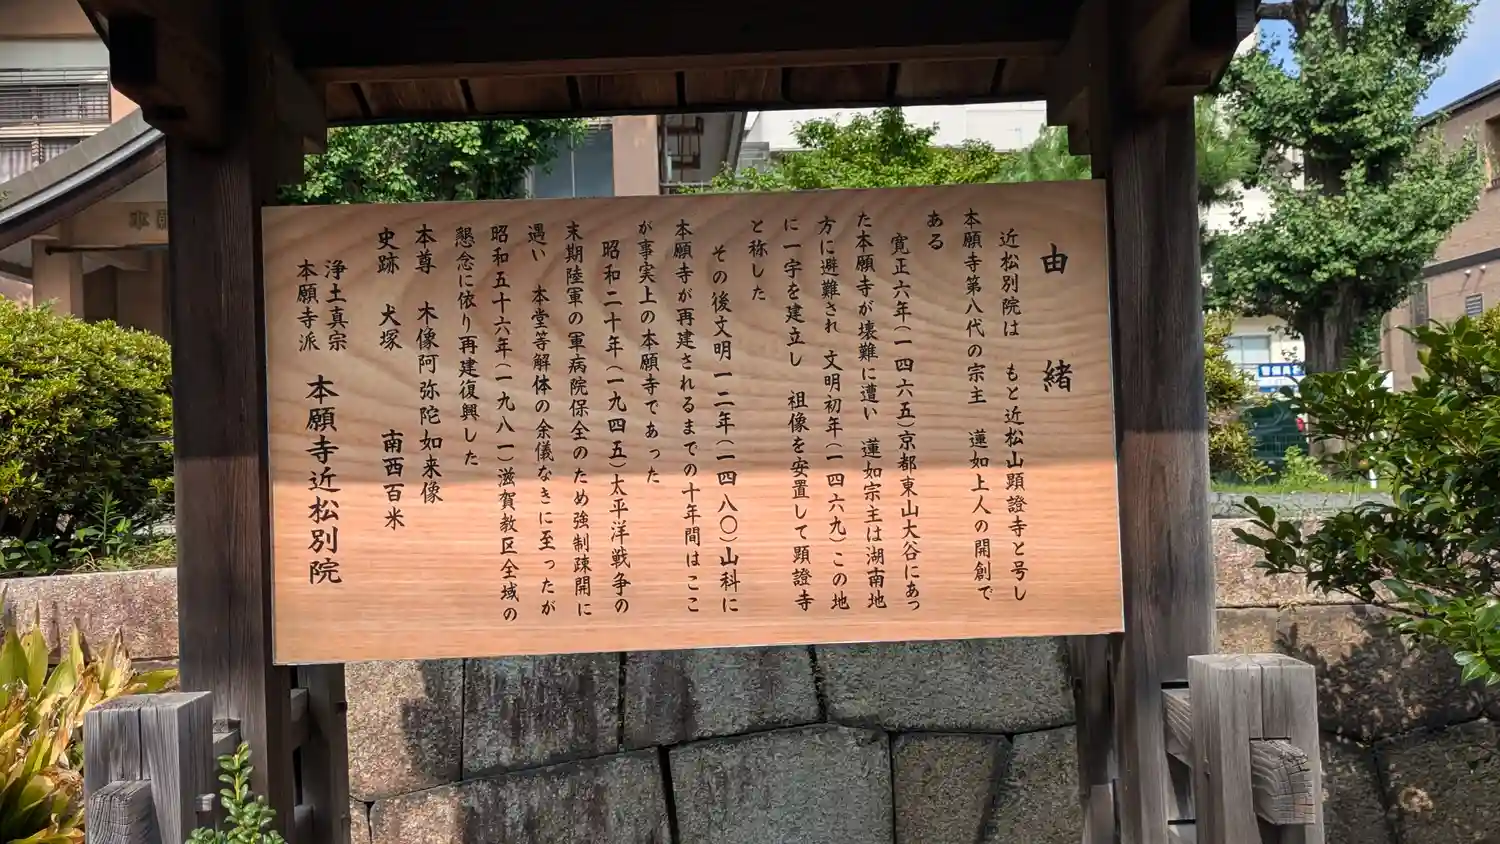 由緒
近松別院は　もと近松山顕證寺と号し
本願寺第八代の宗主　蓮如上人の開創で
ある
寛正六年(一四六五)京都東山大谷にあっ
た本願寺が壊難に遭い　蓮如宗主は湖南地
方に避難され　文明初年(一四六九)この地
に一宇を建立し　祖像を安置して顕證寺
と称した
その後文明一二年(一四八〇)山科に
本願寺が再建されるまでの十年間はここ
が事実上の本願寺であった
昭和二十年(一九四五)太平洋戦争の
末期陸軍の軍病院保全のため強制疎開に
遇い　本堂等解体の余儀なきに至ったが
昭和五十六年(一九八一)滋賀教区全域の
懇念に依り再建復興した
本尊　木像阿弥陀如来像
史跡　犬塚　南西百米
浄土真宗
本願寺派
本願寺近松別院